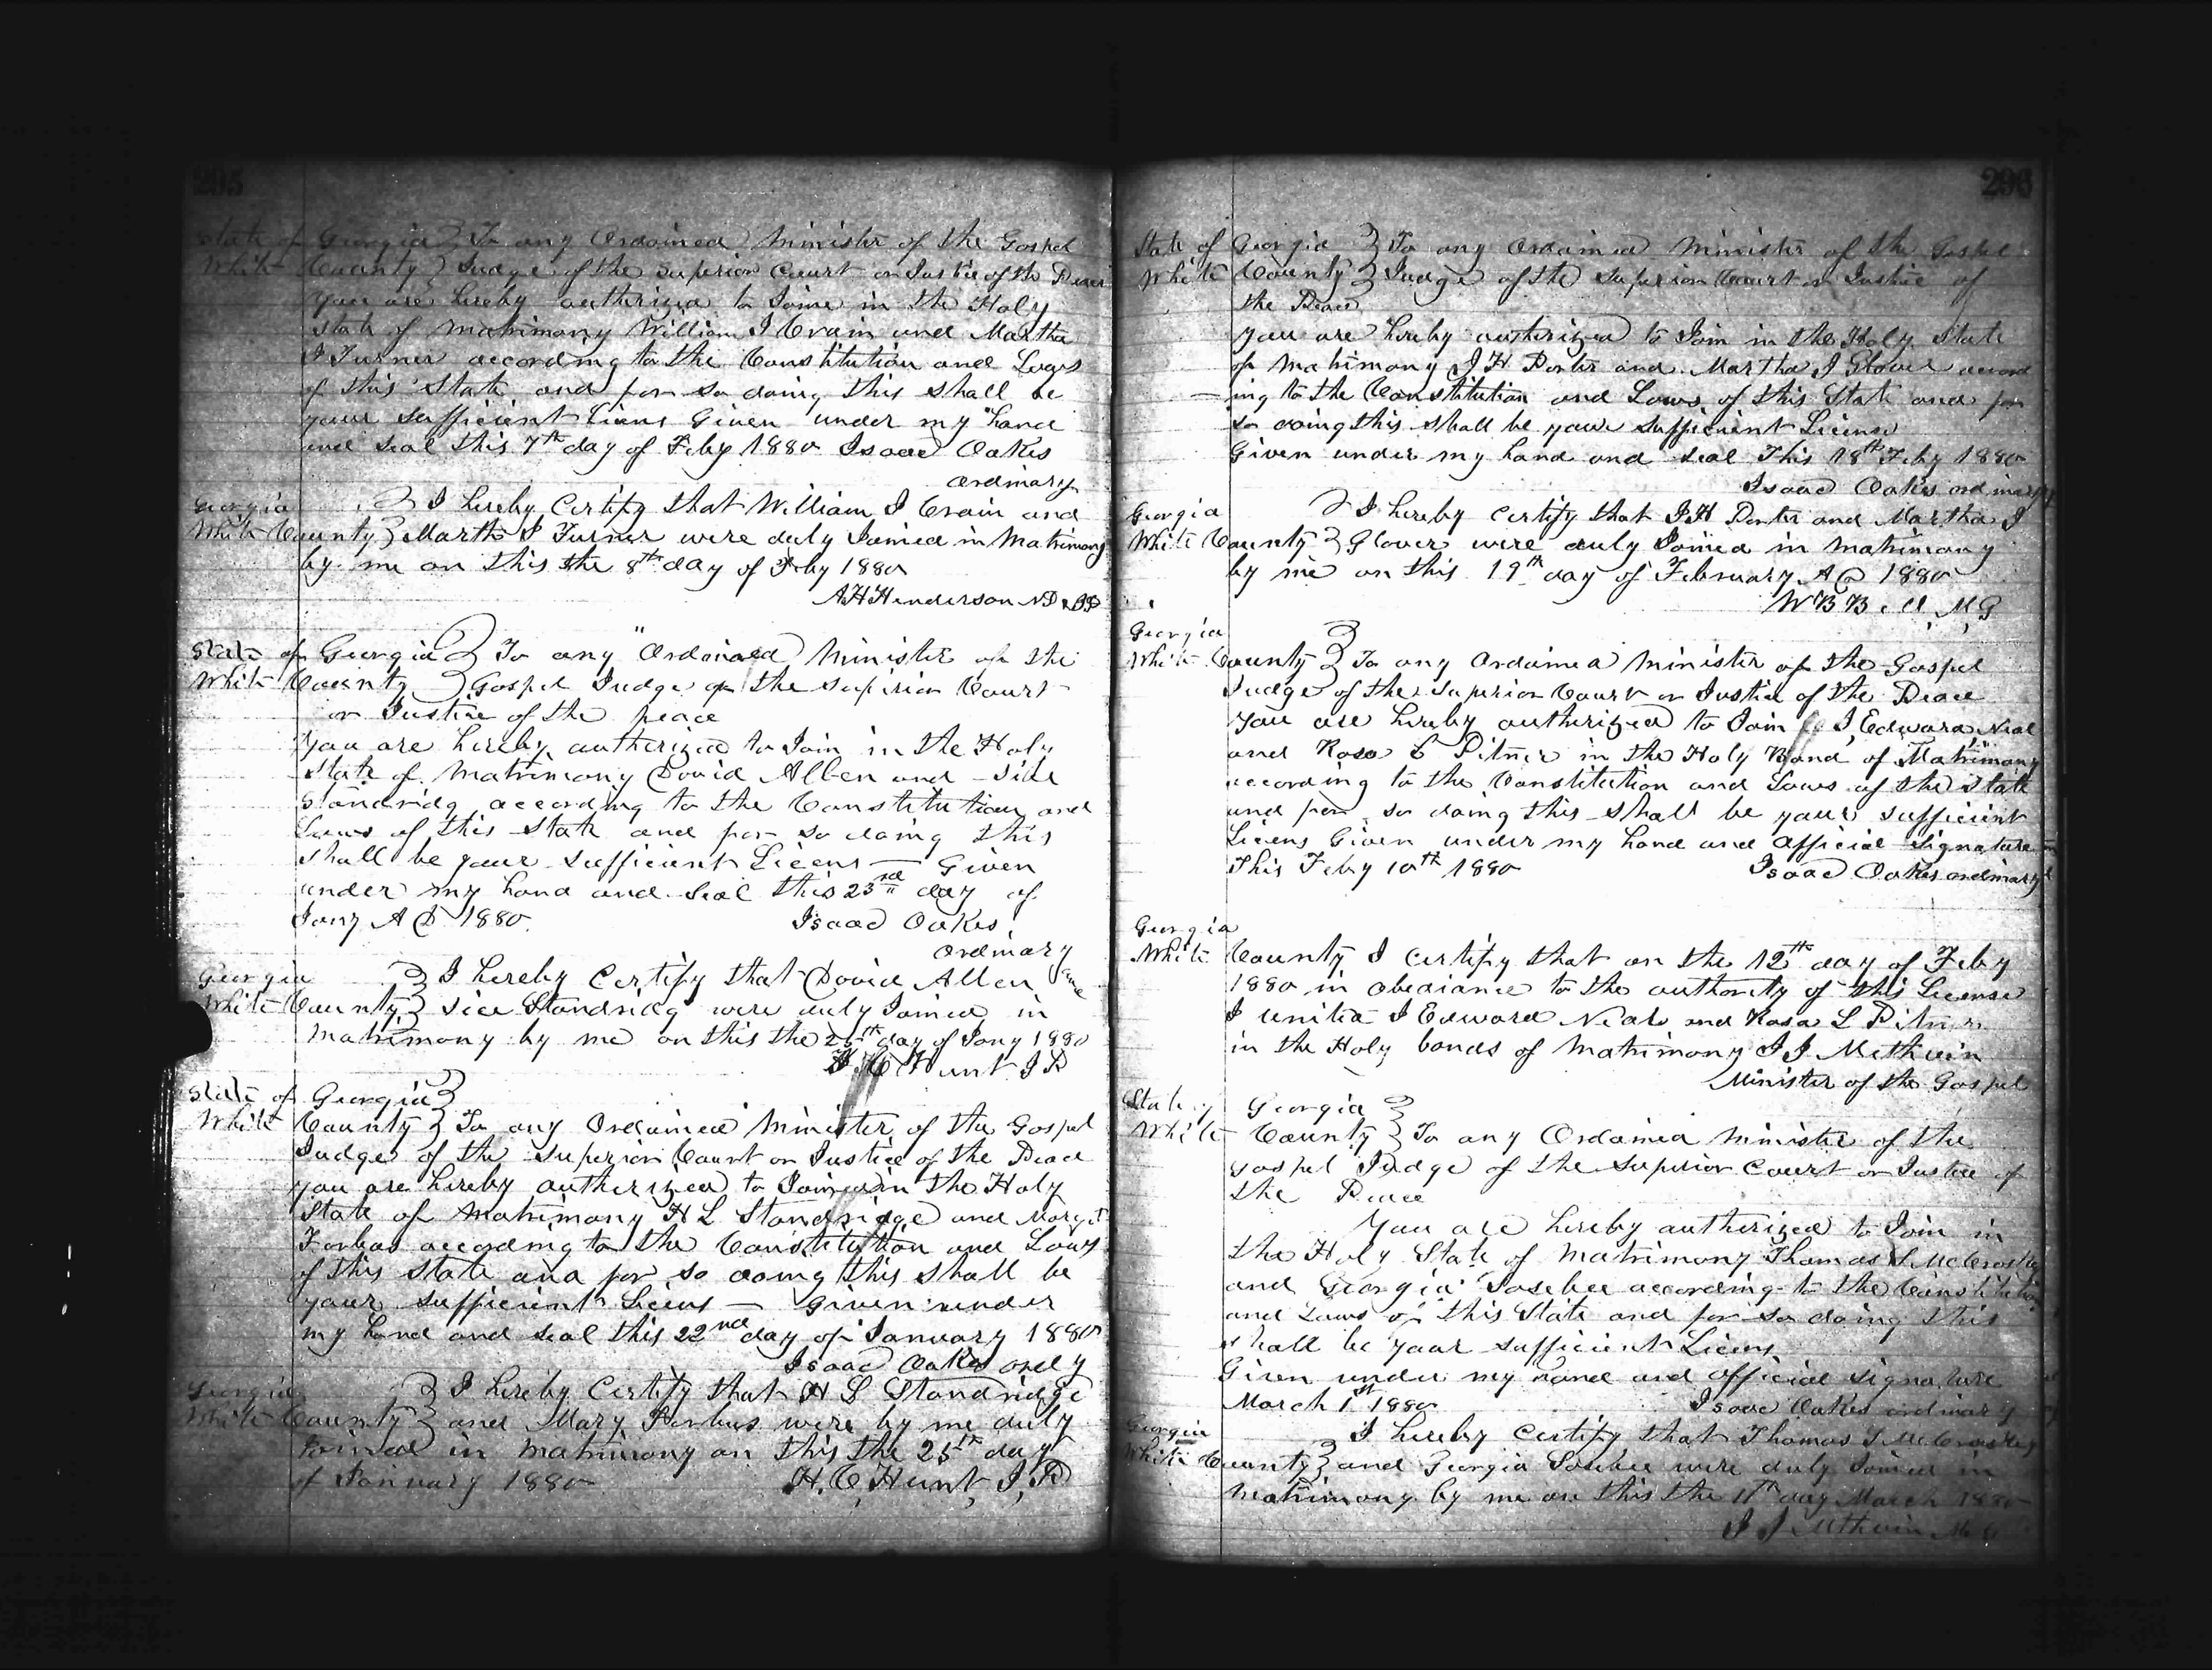 295
State of Georgia } To any Ordained Minister of the Gospel
White County } Judge of the Superior Court or Justice of the Peace
You are hereby autherized to Joine in the Holy
State of Matrimony William J Crain and Martha
J Turner according to the Constitution and Laws
of this State and for so doing this shall be
your sufficient Liens Given under my hand
and seal this 7th day of Feby 1880 Isaac Oakes
Ordinary
Georgia } I hereby Certify that William J Crain and
White County } Martha J Turner were duly Joined in Matrimony
by me on this the 8th day of Feby 1880
A H Henderson
State of Georgia } To any Ordained Minister of the
White County } Gospel Judge of the Superior Court
or Justice of the peace
You are hereby autherized to Join in the Holy
State of Matrimony David Allen and
Standridg according to the Constitution and
Laws of this State and for so doing this
shall be your sufficient Licens — Given
under my hand and seal this 23rd day of
Jany A D 1880 Isaac Oakes
Ordinary
Georgia } I hereby Certify that David Allen and
White County } Standridg were duly Joined in
Matrimony by me on this the day of Jany 1880
H C Hunt J P
State of Georgia }
White County } To any Ordained Minister of the Gospel
Judge of the Superior Court or Justice of the Peace
you are hereby autherized to Join in the Holy
State of Matrimony H L Standridge and
Forbus according to the Constitution and Laws
of this State and for so doing this shall be
your sufficient Liens — Given under
my hand and seal this 22nd day of January 1880
Isaac Oakes ordy
Georgia } I hereby Certify that H L Standridge
White County } and Mary Forbus were by me duly
Joined in Matrimony on this the 25th day
of January 1880 H. C. Hunt, J, P
296
State of Georgia } To any Ordained Minister of the Gospel
White County } Judge of the Superior Court or Justice of
the Peace
You are hereby autherized to Join in the Holy State
of Matrimony J H Porter and Martha J Glover accord
ing to the Constitution and Laws of this State and for
so doing this shall be your sufficient License
Given under my hand and seal This 18th Feby 1880
Isaac Oakes ordinary
Georgia } I hereby Certify that J H Porter and Martha J
White County } Glover were duly Joined in Matrimony
by me on this 19th day of February A D 1880
W B B M, G
Georgia
White County } To any Ordained Minister of the Gospel
Judge of the Superior Court or Justice of the Peace
You are hereby autherized to Join J Edward Neal
and Rosa Pitner in the Holy Band of Matrimony
according to the Constitution and Laws of the State
and for so doing this shall be your sufficient
Licens Given under my hand and official Signature
This Feby 10th 1880 Isaac Oakes ordinary
Georgia
White County I Certify that on the 12th day of Feby
1880 in obediance to the authority of this License
I united J Edward Neal and Rosa L Pitner
in the Holy bonds of Matrimony J J Methvin
Minister of the Gospel
State of Georgia }
White County } To any Ordained Minister of the
Gospel Judge of the Superior Court or Justice of
the Peace
You are hereby autherized to Join in
the Holy State of Matrimony Thomas
and Georgia Sosebee according to the Constitution
and Laws of this State and for so doing this
shall be your sufficient Licens
Given under my hand and official Signature
March 1st 1880 Isaac Oakes ordinary
Georgia I hereby Certify that Thomas
White County } and Georgia Sosebee were duly Joined in
Matrimony by me on this the 11th day March 1880
J J Methvin M G